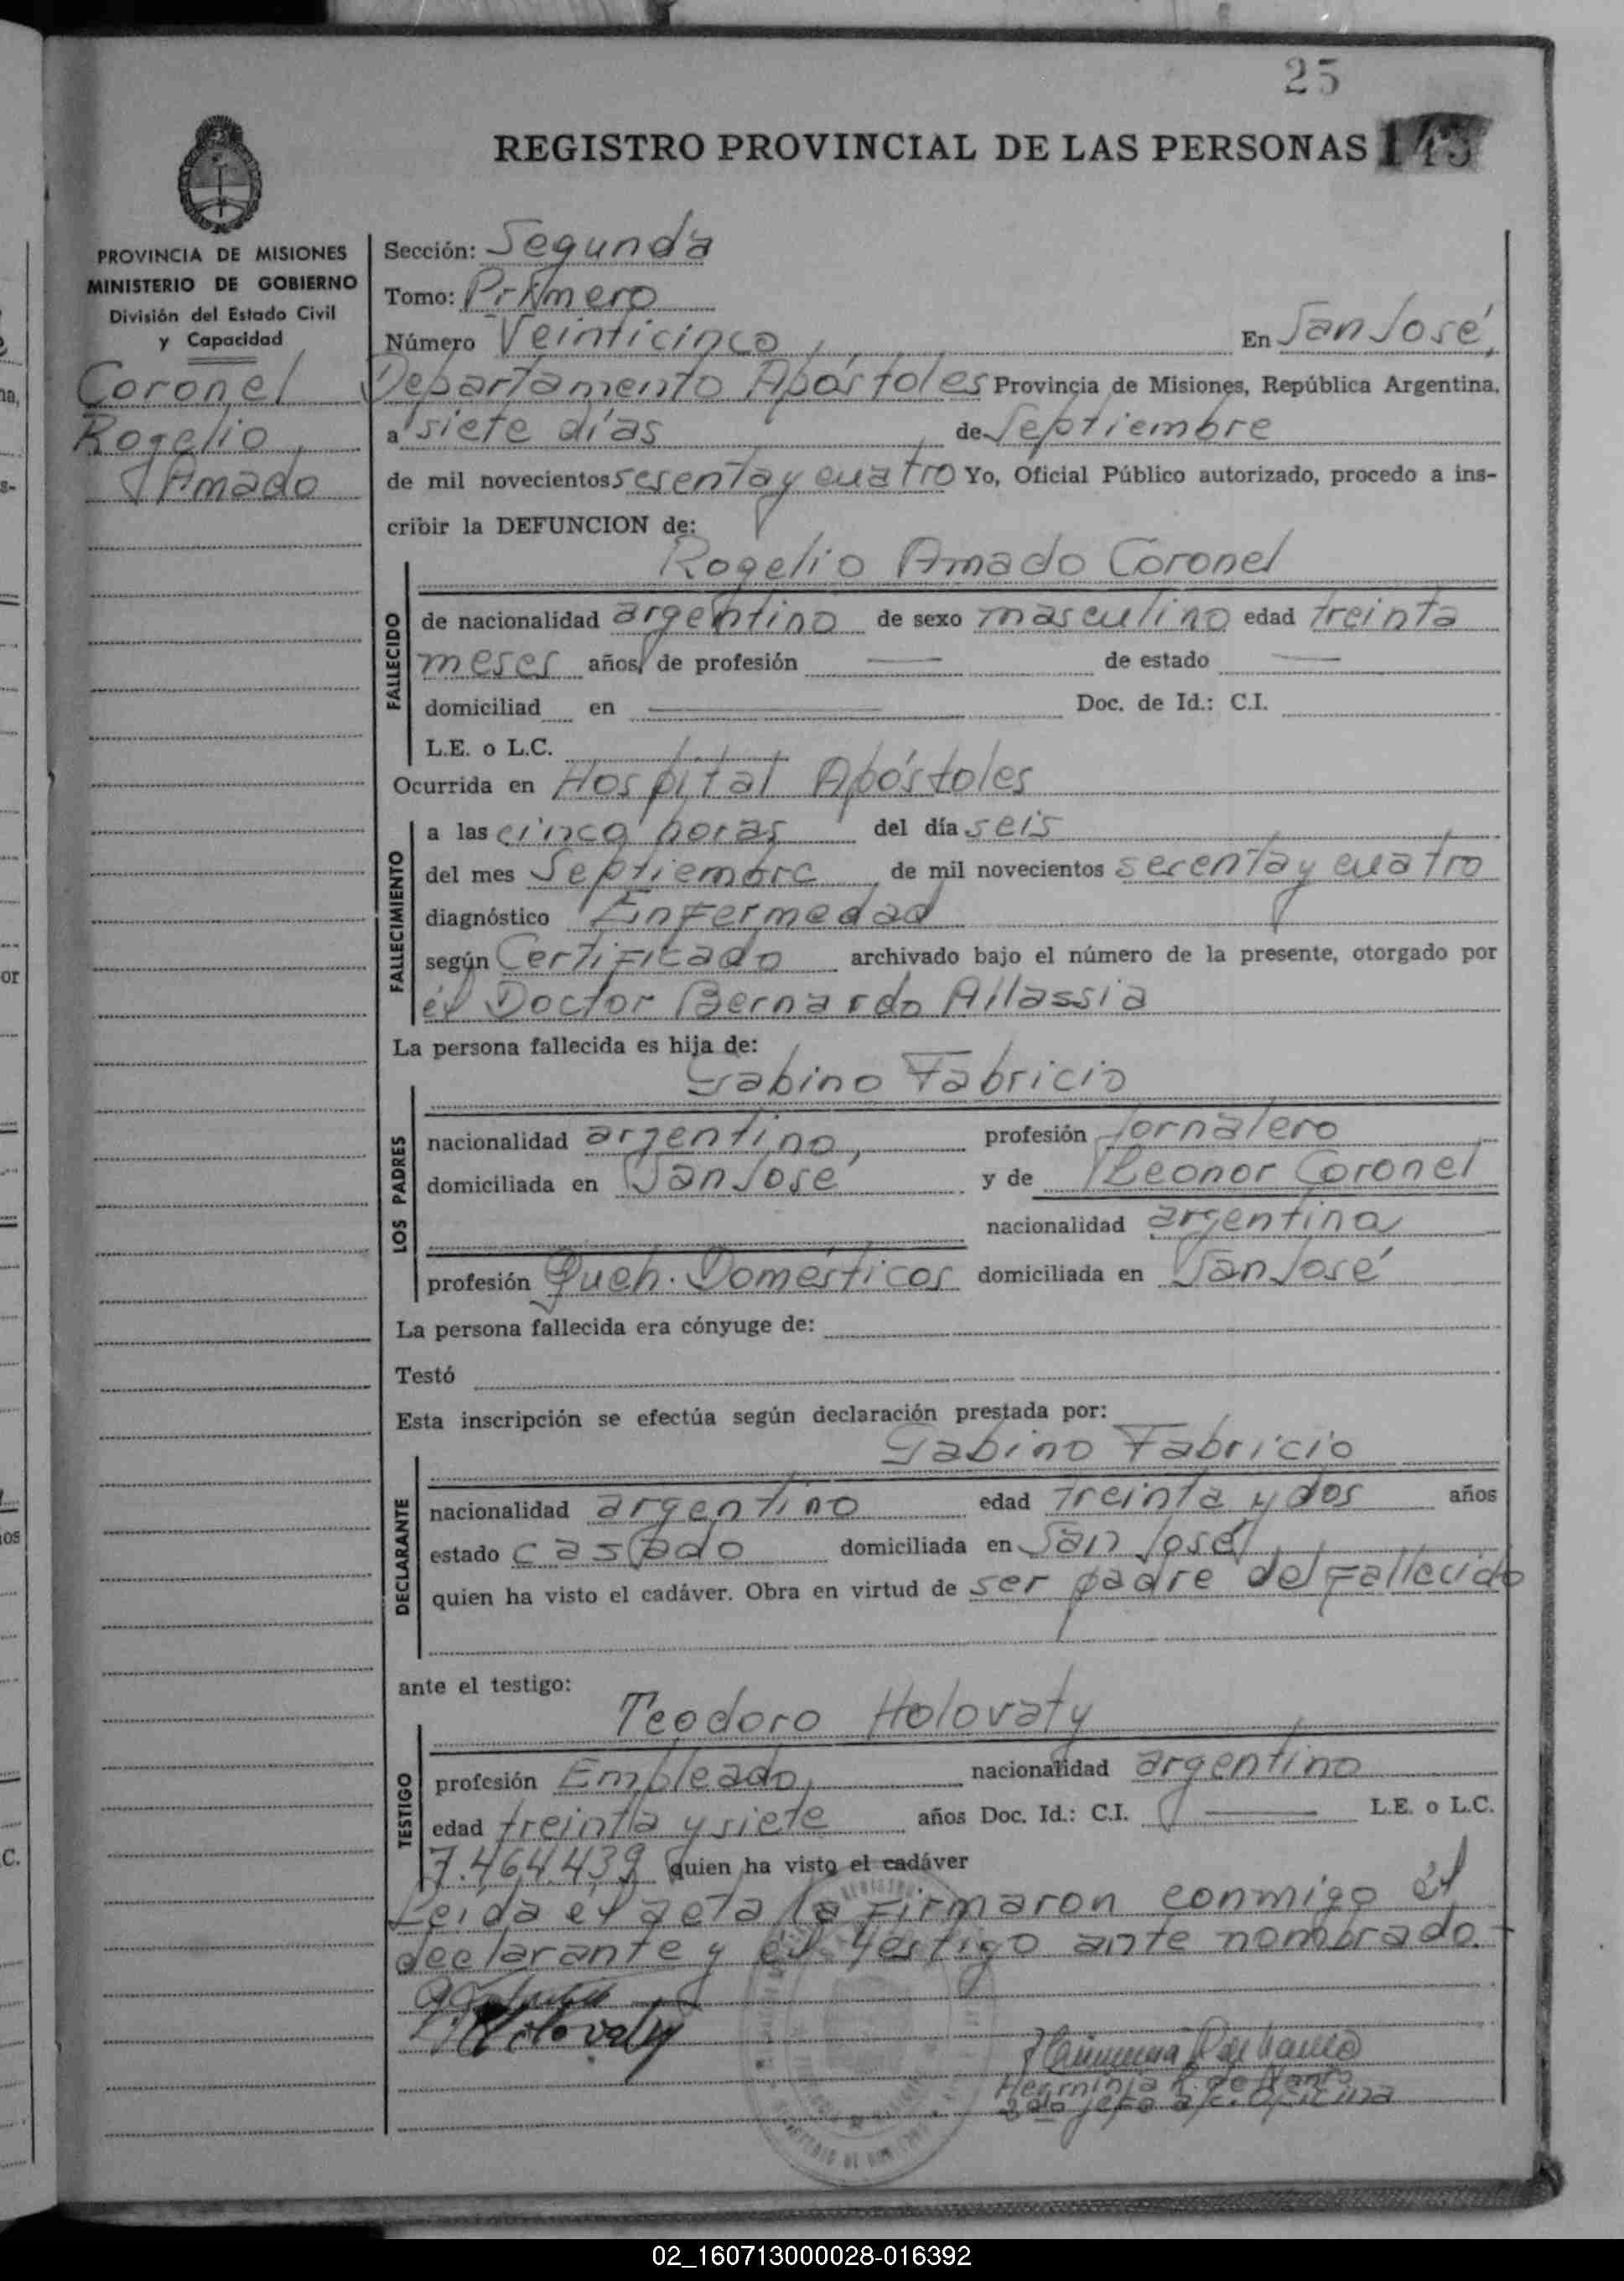 25
REGISTRO PROVINCIAL DE LAS PERSONAS 143
PROVINCIA DE MISIONES
MINISTERIO DE GOBIERNO
División del Estado Civil
y Capacidad
Coronel
Rogelio
Amado
Sección: Segunda
Tomo: Primero
Número Veinticinco En San José,
Departamento Apóstoles Provincia de Misiones, República Argentina,
a siete días de Septiembre
de mil novecientos sesenta y cuatro Yo, Oficial Público autorizado, procedo a ins-
cribir la DEFUNCION de:
Rogelio Amado Coronel
FALLECIDO
de nacionalidad argentino de sexo masculino edad treinta
meses años, de profesión — de estado —
domiciliad en — Doc. de Id.: C.I.
L.E. o L.C.
Ocurrida en Hospital Apóstoles
FALLECIMIENTO
a las cinco horas del día seis
del mes Septiembre de mil novecientos secenta y cuatro
diagnóstico Enfermedad
según Certificado archivado bajo el número de la presente, otorgado por
él Doctor Bernardo Allassia
La persona fallecida es hija de:
Gabino Fabricio
LOS PADRES
nacionalidad argentino, profesión Jornalero
domiciliada en San José y de Leonor Coronel
nacionalidad argentina
profesión Queh. Domésticos domiciliada en San José
La persona fallecida era cónyuge de:
Testó
Esta inscripción se efectúa según declaración prestada por:
Gabino Fabricio
DECLARANTE
nacionalidad argentino edad treinta y dos años
estado casado domiciliada en San José
quien ha visto el cadáver. Obra en virtud de ser padre del fallecido
ante el testigo:
Teodoro Holovaty
TESTIGO
profesión Empleado, nacionalidad argentino
edad treinta y siete años Doc. Id.: C.I. — L.E. o L.C.
7.464.439 quien ha visto el cadáver
Leída el acta la firmaron conmigo él
declarante y él testigo ante nombrado.-
Holovaty
Herminia R. de
2do jefe a/c. Oficina
02_160713000028-016392